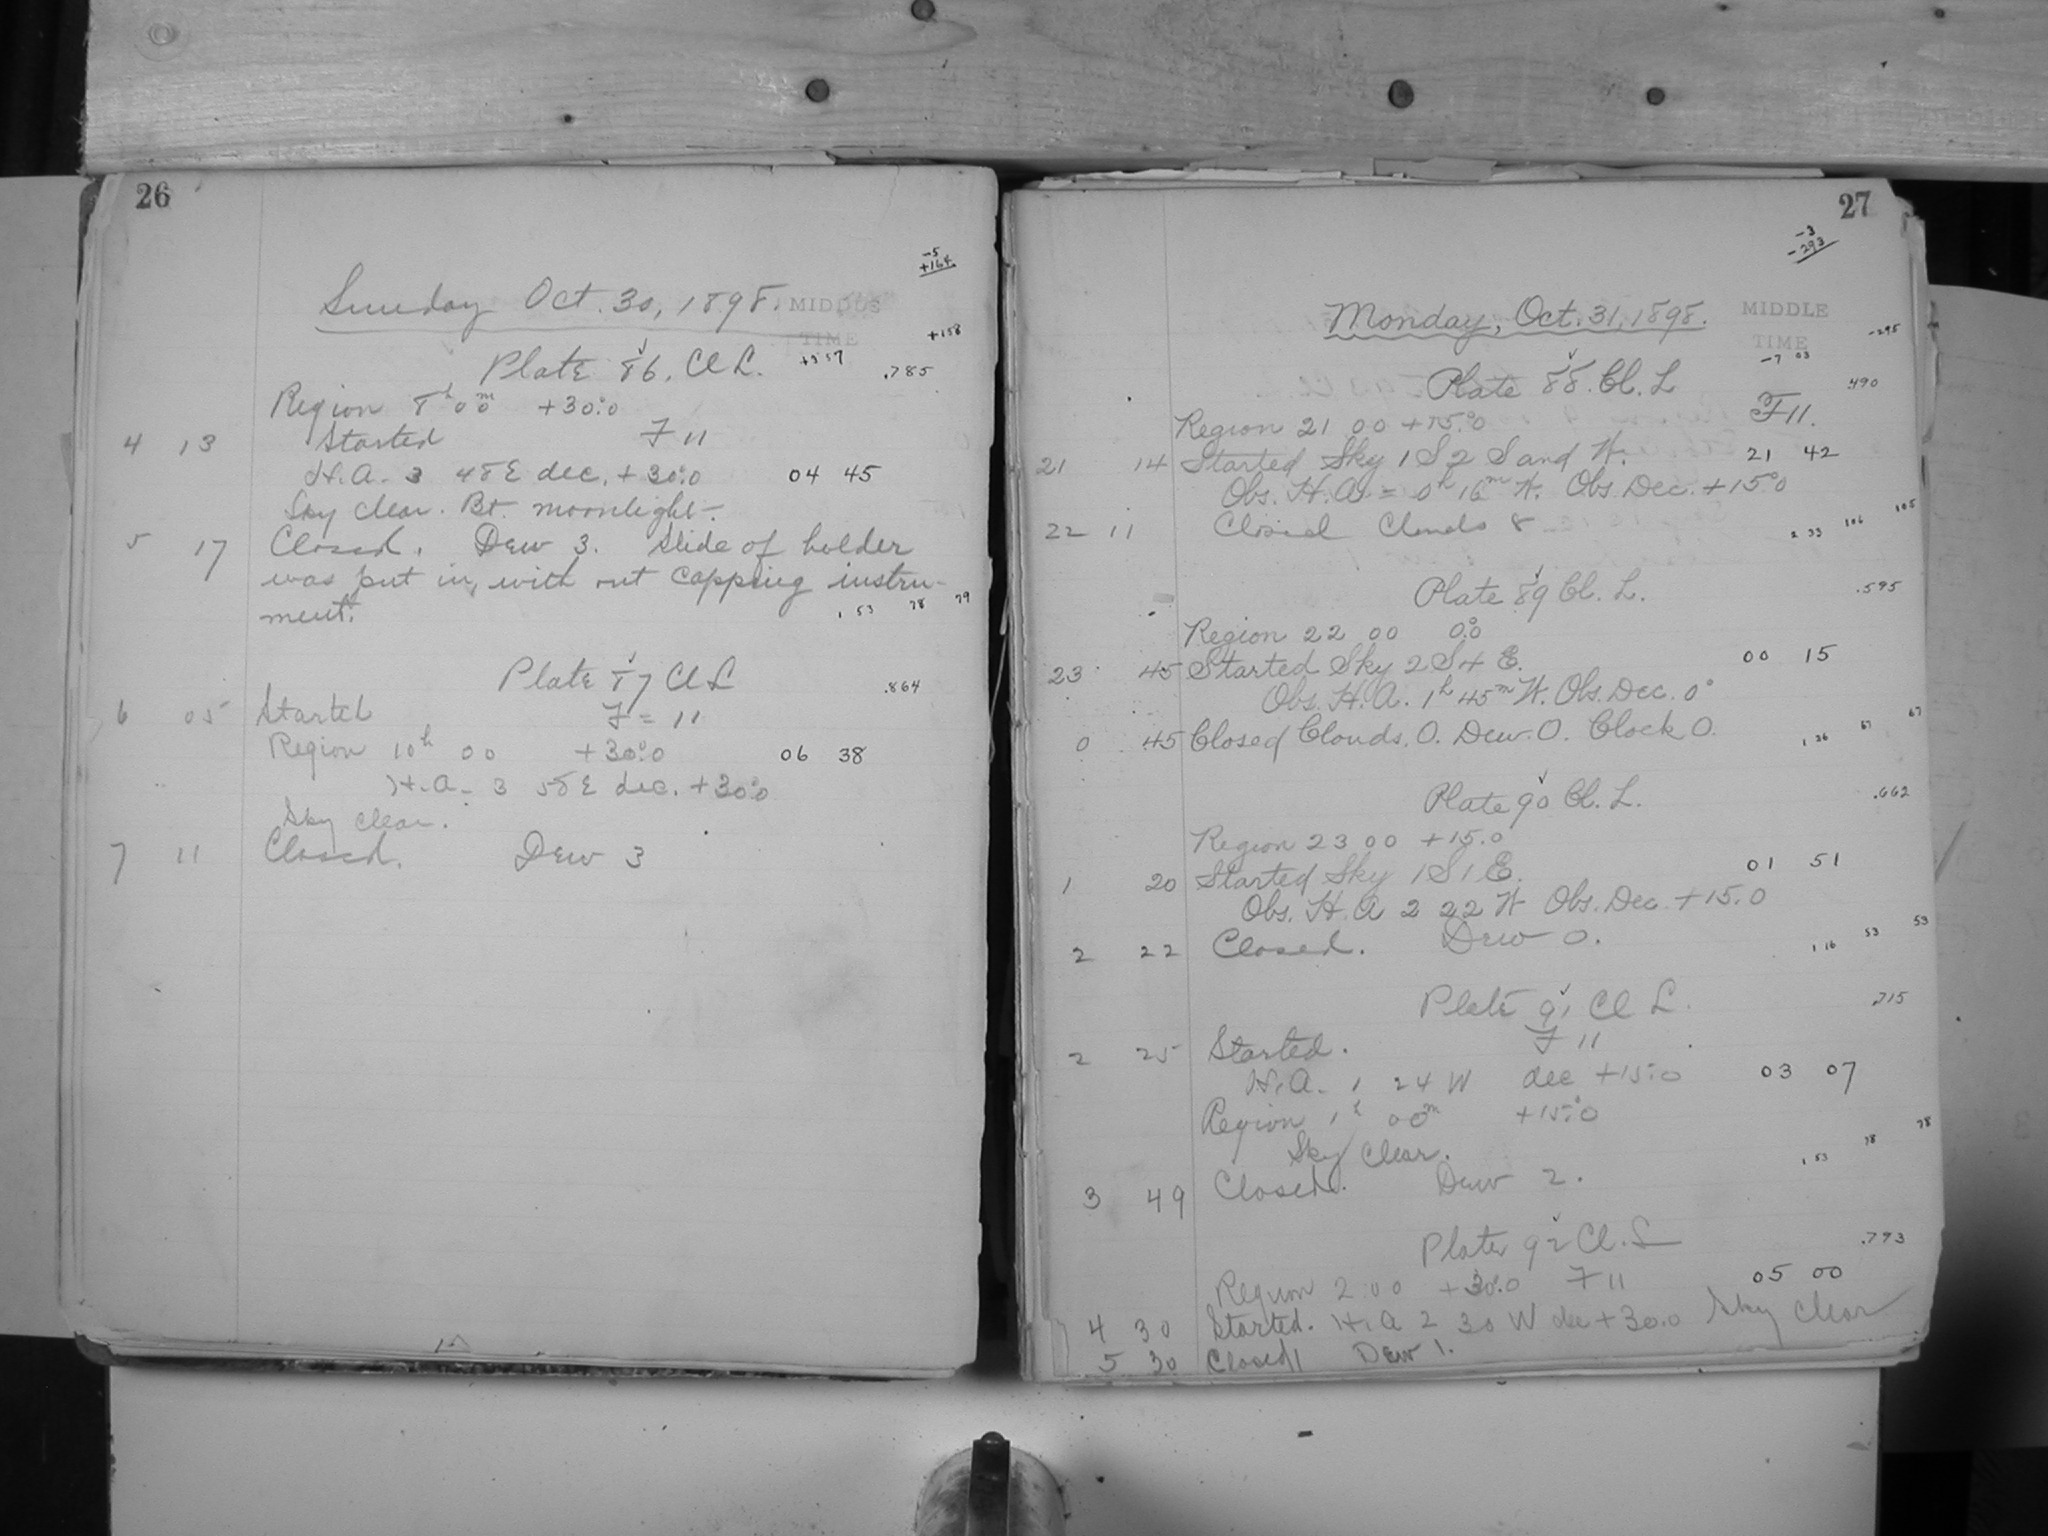 26
-5
+164
Sunday Oct. 30, 1898. MIDDLE
TIME
+158
Plate 86, Cl L. +3 57
.785
Region 8h 00m +30.°0
4 13 Started F 11
H.A. 3 48 E dec. +30.°0 04 45
Sky clear. Bt. moonlight.
5 17 Closed. Dew 3. Slide of holder
was put in, with out capping instru-
ment.
1 53 78 79
Plate 87 Cl L
.864
6 05 Started F = 11
Region 10h 00 +30.°0 06 38
H.A. 3 58 E dec. +30.°0
Sky clear.
7 11 Closed. Dew 3
27
-3
-293
Monday, Oct. 31, 1898. MIDDLE
TIME
-295
-7 03
Plate 88. Cl. L
.490
F 11.
Region 21 00 +15.°0
21 14 Started Sky 1 S 2 S and W. 21 42
Obs. H.A. = 0h 16m W. Obs. Dec. +15.°0
22 11 Closed Clouds 8
2 33 106 105
Plate 89 Cl. L.
.595
Region 22 00 0.°0
23 45 Started Sky 2 S 4 E. 00 15
Obs. H.A. 1h 45m W. Obs. Dec. 0°
0 45 Closed Clouds. 0. Dew. 0. Clock 0.
1 36 67 67
Plate 90 Cl. L.
.662
Region 23 00 +15.0
1 20 Started Sky 1 S 1 E. 01 51
Obs. H.A 2 22 W Obs. Dec. +15.0
2 22 Closed. Dew 0.
1 16 53 53
Plate 91 Cl L.
.715
2 25 Started. F 11
H.A. 1 24 W dec +15.0 03 07
Region 1h 00m +15.°0
Sky Clear.
1 53 78 78
3 49 Closed. Dew 2.
Plate 92 Cl. L
.793
Region 2 00 +30.°0 F 11 05 00
4 30 Started. H.A 2 30 W dec +30.0 Sky clear
5 30 Closed Dew 1.